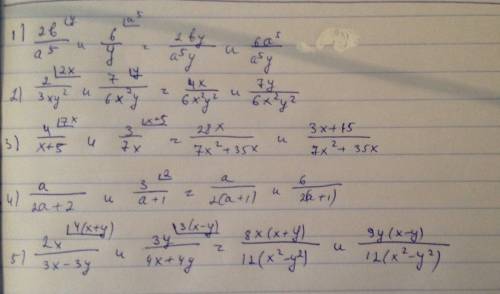 1) 2b/a⁵ |y и 6/y |a⁵ = 2by/a⁵y и 6a⁵/a⁵y
2) 2/3xy² |2x и 7/6x²y |y = 4x/6x²y² и 7y/6x²y²
3) 4/x+5 |7x и 3/7x |x+5 = 28x/7x²+35x и 3x+15/7x²+35x
4) a/2a+2 и 3/a+1 |2 = a/2(a+1) и 6/2(a+1)
5) 2x/3x-3y |4(x+y) и 3y/4x+4y |3(x-y) = 8x(x+y)/12(x²-y²) и 9y(x-y)/12(x²-y²)